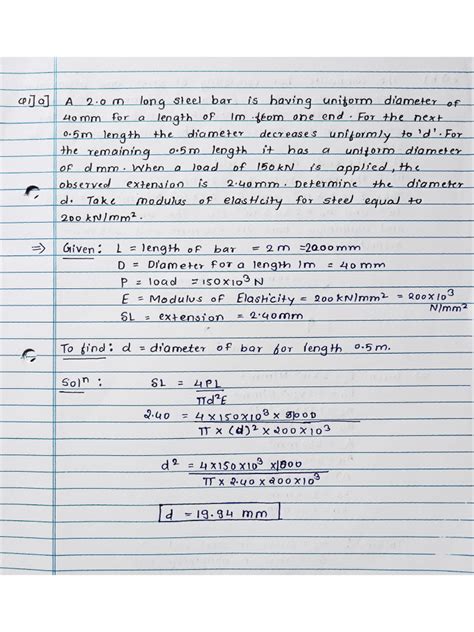 Q1]a] A 2.0 m long steel bar is having uniform diameter of
40mm for a length of 1m from one end. For the next
0.5m length the diameter decreases uniformly to 'd'. For
the remaining 0.5m length it has a uniform diameter
of d mm. When a load of 150kN is applied, the
observed extension is 2.40mm. Determine the diameter
d. Take modulus of elasticity for steel equal to
200 kN/mm².
⇒ Given: L = length of bar = 2m = 2000mm
D = Diameter for a length 1m = 40mm
P = load = 150x10³ N
E = Modulus of Elasticity = 200kN/mm² = 200x10³ N/mm²
SL = extension = 2.40mm
To find: d = diameter of bar for length 0.5m.
Solⁿ: SL = 4PL
πd²E
2.40 = 4x150x10³ x
π x (d)² x 200x10³
d² = 4x150x10³
π x 2.40 x 200x10³
d = 19.94 mm